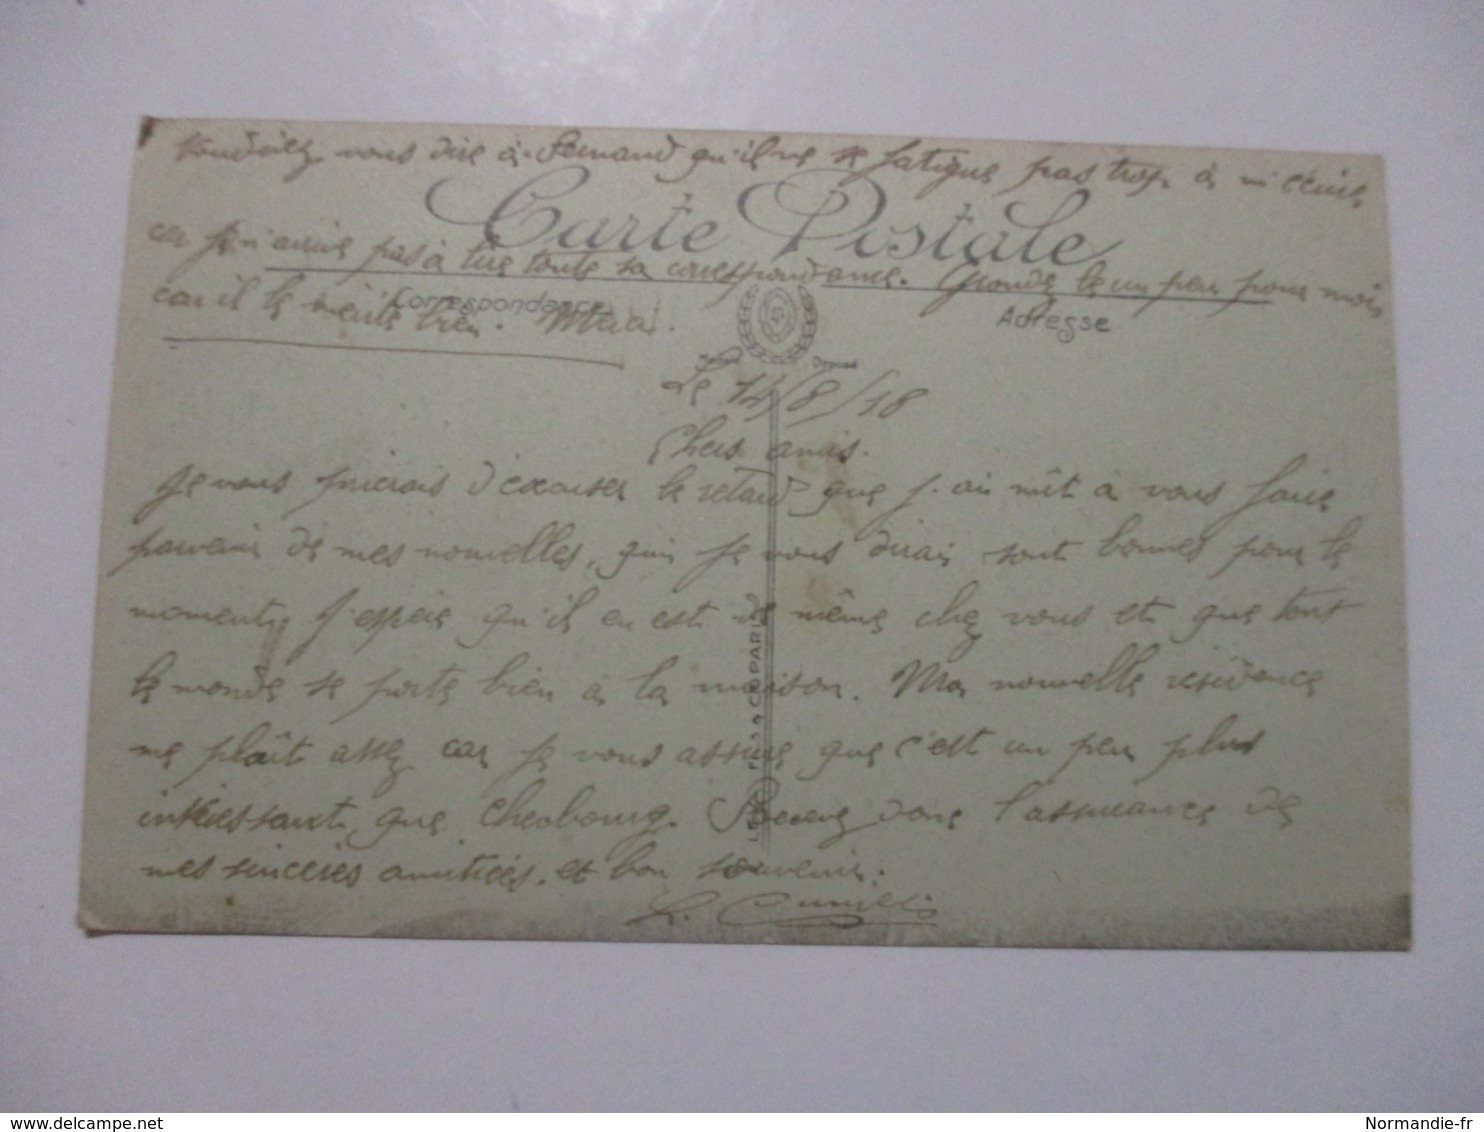 Voudriez vous dire à Fernand qu'il ne se fatigue pas trop à m'écrire,
Carte Postale
car je n'arrive pas à lire toute sa correspondance. Gronde le un peu pour moi
Correspondance
Adresse
car il le mérite bien. Merci.
Le 14/8/18
Chers amis.
Je vous prierais d'éxcuser le retard que j'ai mît à vous faire
parvenir de mes nouvelles, qui je vous dirai sont bonnes pour le
moment, J'espère qu'il en est de même chez vous et que tout
le monde se porte bien à la maison. Ma nouvelle résidence
me plaît assez car je vous assure que c'est un peu plus
intéressant que Cherbourg. Recevez donc l'assurance de
mes sincères amitiés. et bon souvenir.